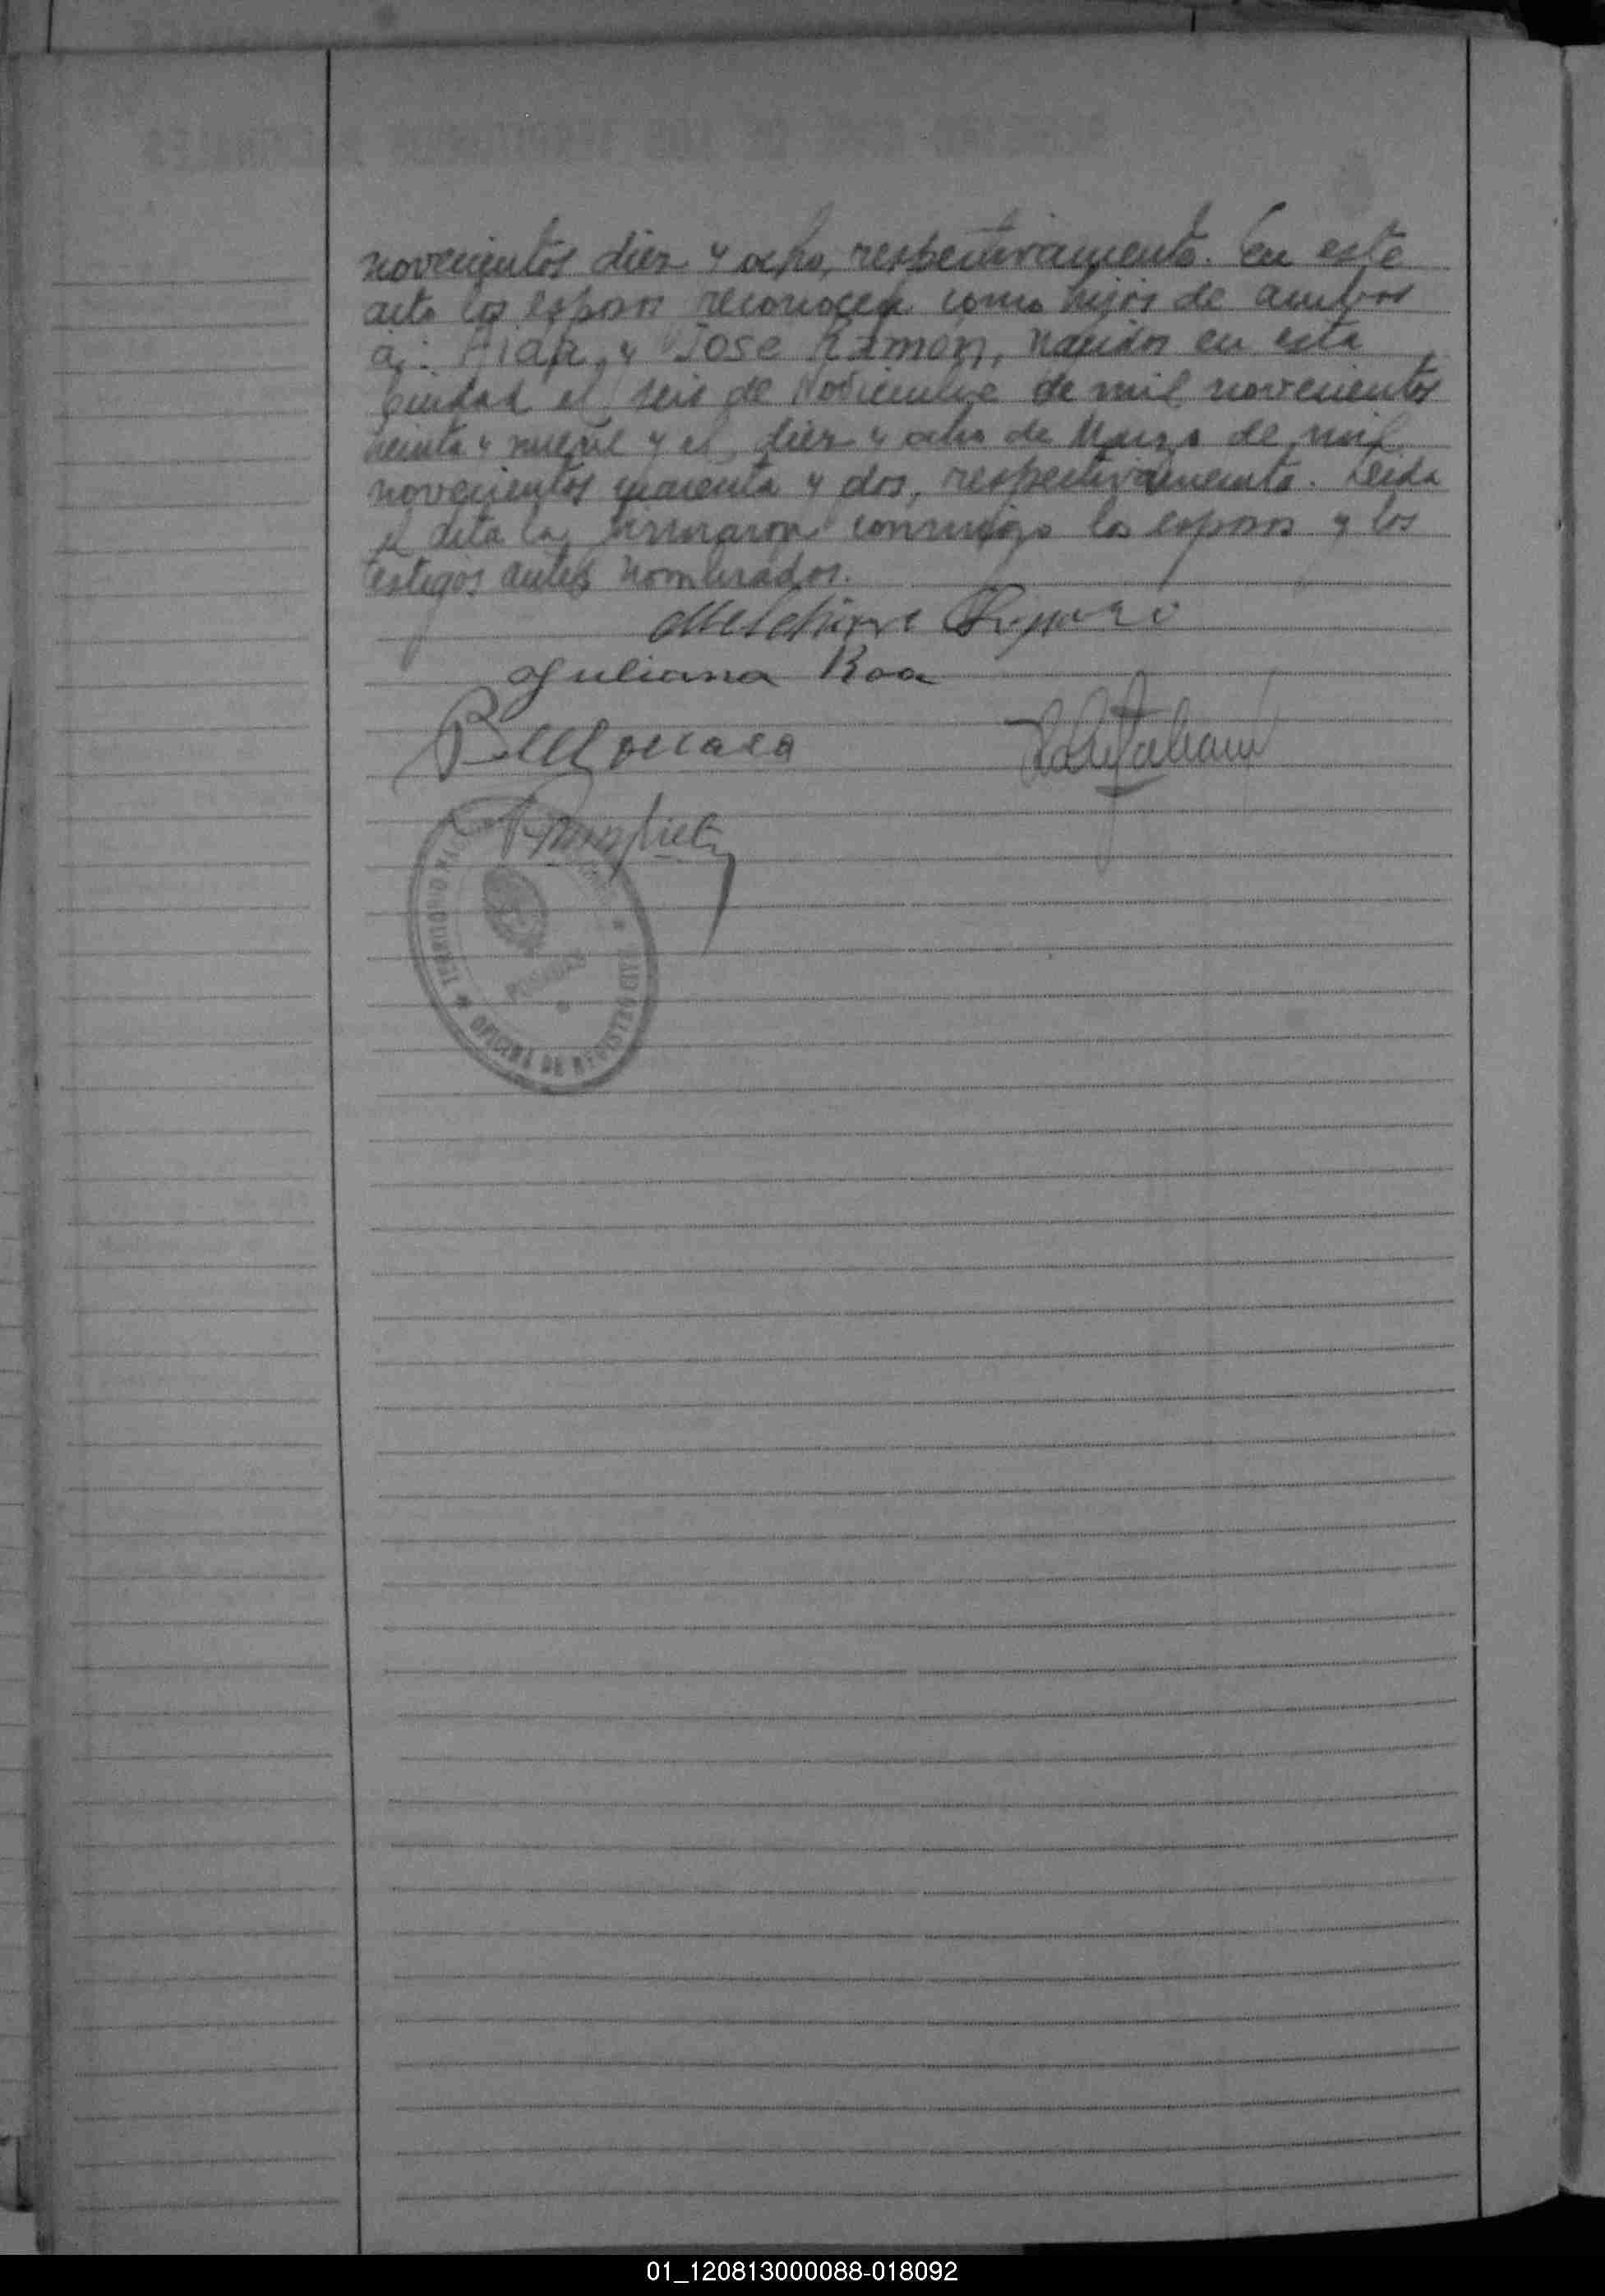 novecientos diez y ocho, respectivamente. En este
acto los esposos reconocen como hijos de ambos
a: Aida, y José Ramón, nacidos en esta
Ciudad el seis de Noviembre de mil novecientos
treinta y nueve y el diez y ocho de Marzo de mil
novecientos cuarenta y dos, respectivamente. Leida
el acta la firmaron conmigo los esposos y los
testigos antes nombrados.
Juliana Roa
TERRITORIO
POSADAS
OFICINA DE REGISTRO CIVIL
01_120813000088-018092